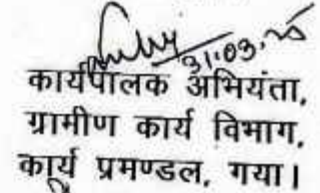 31.03.
कार्यपालक अभियंता,
ग्रामीण कार्य विभाग,
कार्य प्रमण्डल, गया।